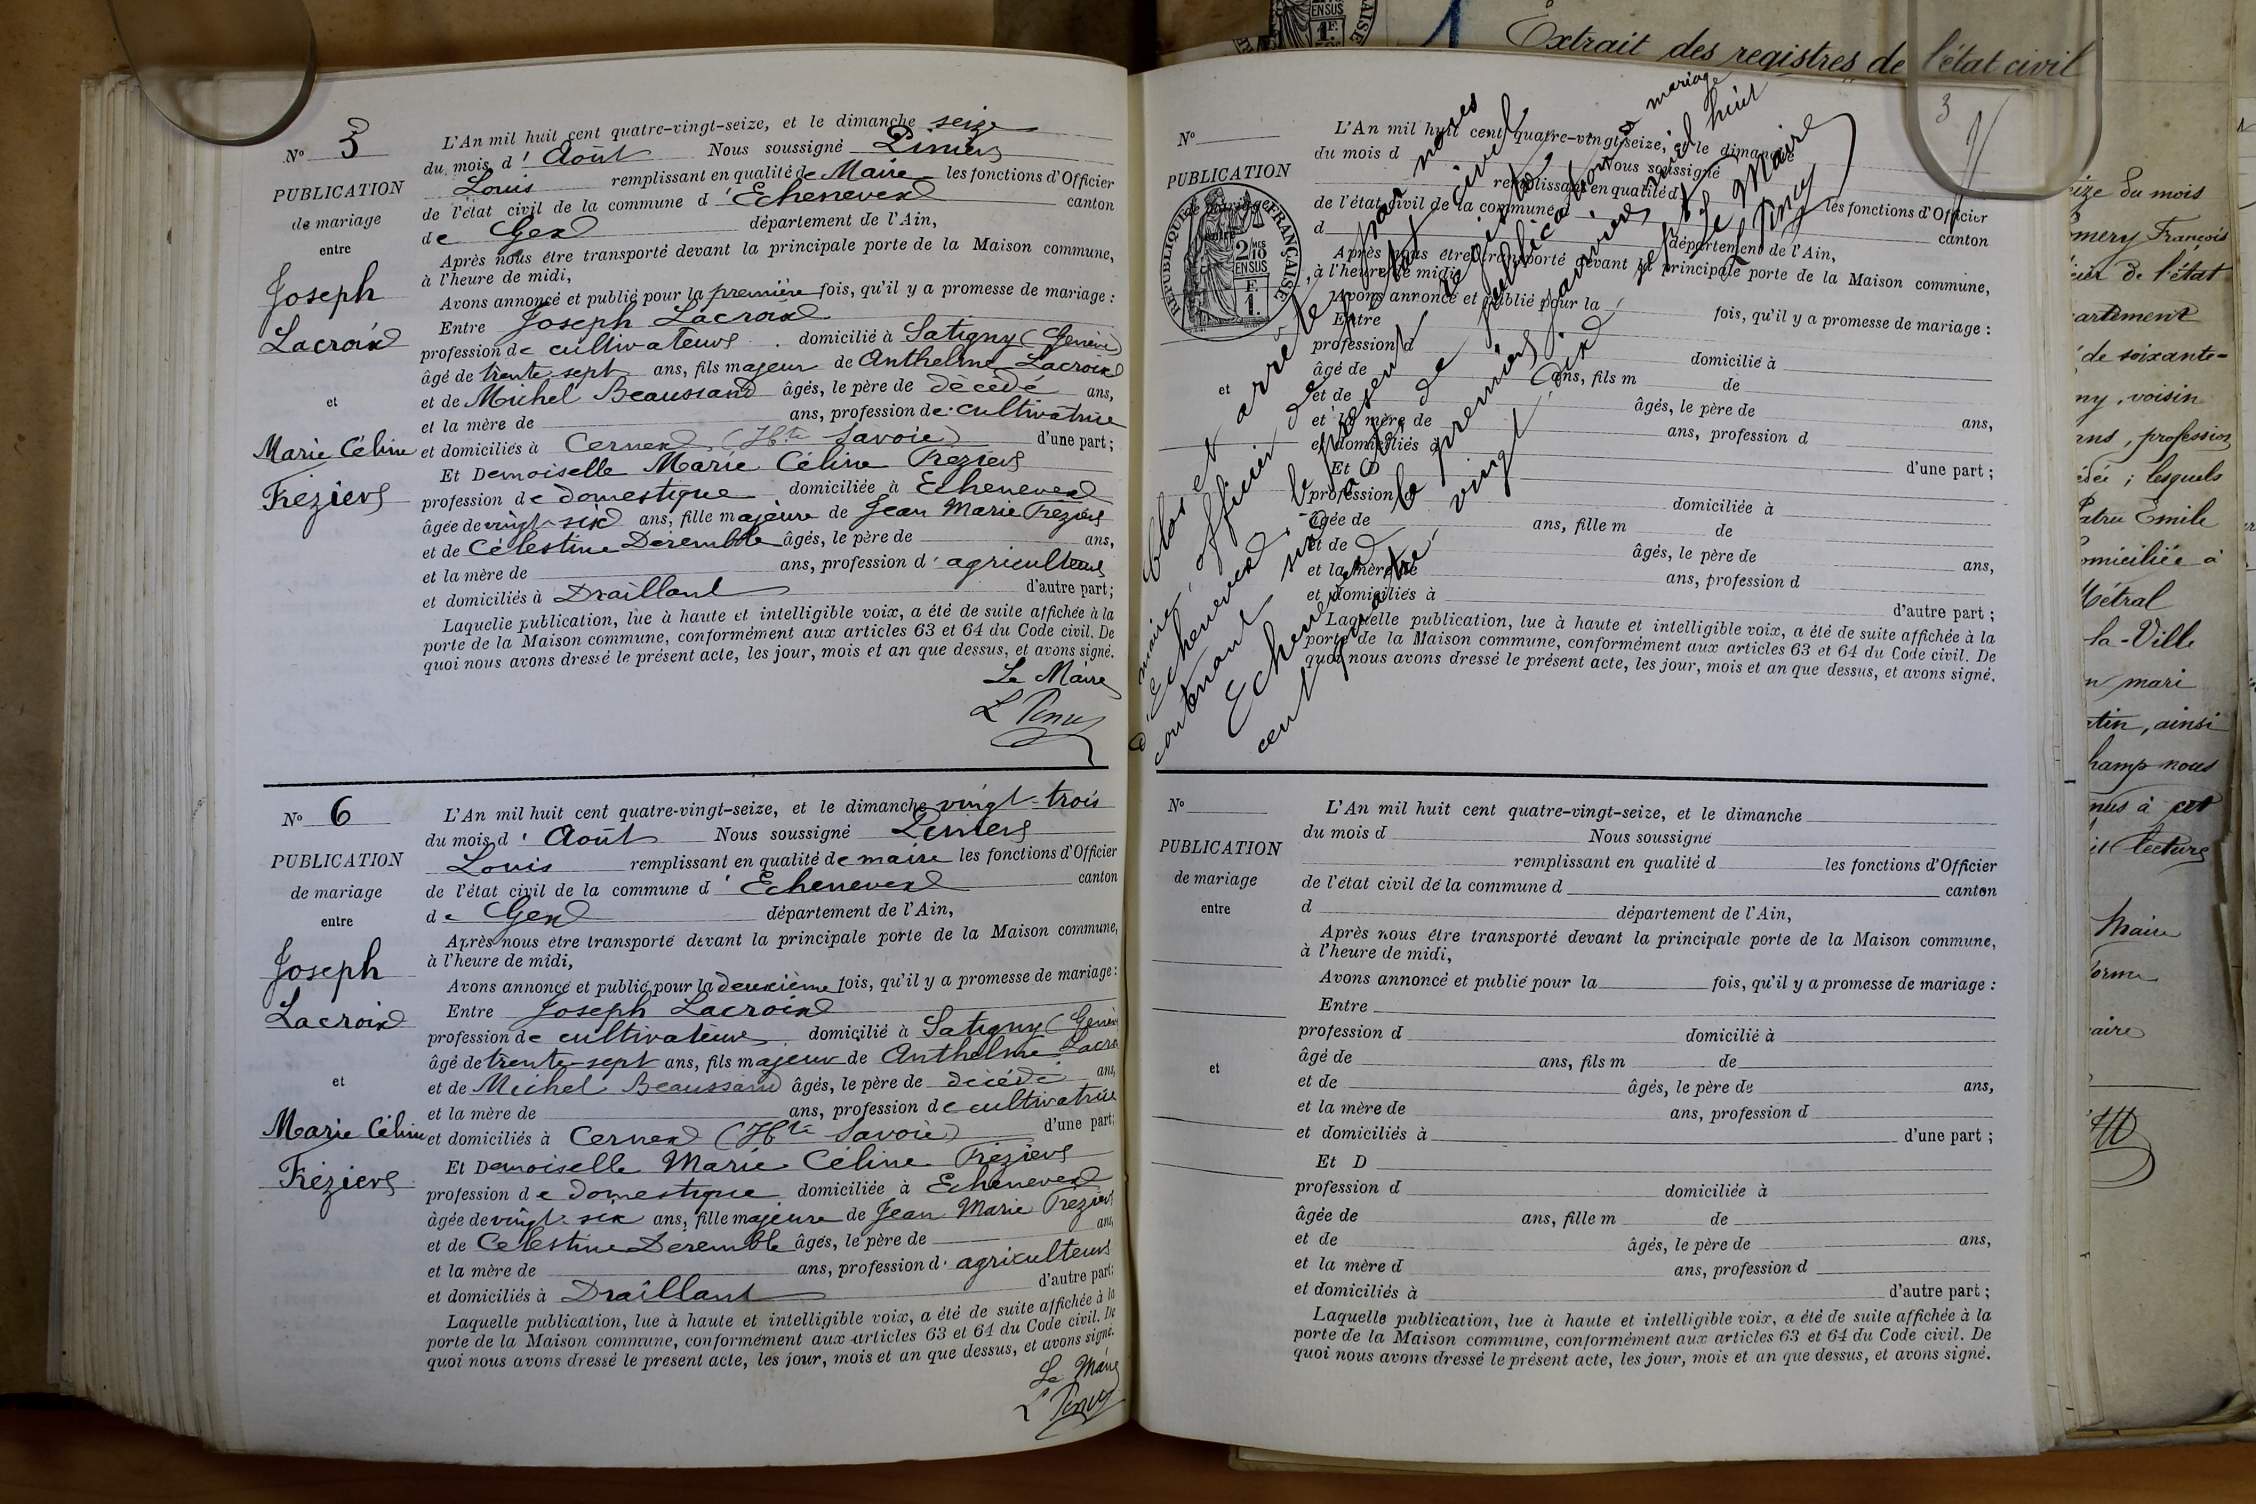 Extrait des registres de l'état civil
N° 5
PUBLICATION
de mariage
entre
Joseph
Lacroix
et
Marie Céline
Préziers
L'An mil huit cent quatre-vingt-seize, et le dimanche seize
du mois d'Août Nous soussigné
Louis remplissant en qualité de Maire les fonctions d'Officier
de l'état civil de la commune d'Echenevex canton
de Gex département de l'Ain,
Après nous être transporté devant la principale porte de la Maison commune,
à l'heure de midi,
Avons annoncé et publié pour la première fois, qu'il y a promesse de mariage :
Entre Joseph Lacroix
profession de cultivateur domicilié à Satigny (Genève)
âgé de trente-sept ans, fils majeur de Anthelme Lacroix
et de Michel Beaussand âgés, le père de décédé ans,
et la mère de ans, profession de cultivatrice
et domiciliés à Cernex (Hte Savoie) d'une part ;
Et Demoiselle Marie Céline Préziers
profession de domestique domiciliée à Echenevex
âgée de vingt-six ans, fille majeure de Jean Marie Préziers
et de Célestine Deremble âgés, le père de ans,
et la mère de ans, profession d'agriculteurs
et domiciliés à Draillant d'autre part ;
Laquelle publication, lue à haute et intelligible voix, a été de suite affichée à la
porte de la Maison commune, conformément aux articles 63 et 64 du Code civil. De
quoi nous avons dressé le présent acte, les jour, mois et an que dessus, et avons signé.
Le Maire
N° 6
PUBLICATION
de mariage
entre
Joseph
Lacroix
et
Marie Céline
Préziers
L'An mil huit cent quatre-vingt-seize, et le dimanche vingt-trois
du mois d'Août Nous soussigné
Louis remplissant en qualité de maire les fonctions d'Officier
de l'état civil de la commune d'Echenevex canton
de Gex département de l'Ain,
Après nous être transporté devant la principale porte de la Maison commune,
à l'heure de midi,
Avons annoncé et publié pour la deuxième fois, qu'il y a promesse de mariage :
Entre Joseph Lacroix
profession de cultivateur domicilié à Satigny (Genèv
âgé de trente-sept ans, fils majeur de Anthelme Lacro
et de Michel Beaussand âgés, le père de décédé ans,
et la mère de ans, profession de cultivatrice
et domiciliés à Cernex (Hte Savoie) d'une part;
Et Demoiselle Marie Céline Préziers
profession de domestique domiciliée à Echenevex
âgée de vingt-six ans, fille majeure de Jean Marie Préziers
et de Célestine Deremble âgés, le père de ans,
et la mère de ans, profession d'agriculteurs
et domiciliés à Draillant d'autre part;
Laquelle publication, lue à haute et intelligible voix, a été de suite affichée à la
porte de la Maison commune, conformément aux articles 63 et 64 du Code civil. De
quoi nous avons dressé le présent acte, les jour, mois et an que dessus, et avons signé.
Le Maire
3
N°
PUBLICATION
de mariage
entre
RÉPUBLIQUE FRANÇAISE
2/10 EN SUS
1 F.
et
L'An mil huit cent quatre-vingt-seize, et le dimanche
du mois d Nous soussigné
remplissant en qualité d les fonctions d'Officier
de l'état civil de la commune d canton
d département de l'Ain,
Après nous être transporté devant la principale porte de la Maison commune,
à l'heure de midi,
Avons annoncé et publié pour la fois, qu'il y a promesse de mariage :
Entre
profession d domicilié à
âgé de ans, fils m de
et de âgés, le père de ans,
et la mère de ans, profession d
et domiciliés à d'une part ;
Et D
profession d domiciliée à
âgée de ans, fille m de
et de âgés, le père de ans,
et la mère de ans, profession d
et domiciliés à d'autre part ;
Laquelle publication, lue à haute et intelligible voix, a été de suite affichée à la
porte de la Maison commune, conformément aux articles 63 et 64 du Code civil. De
quoi nous avons dressé le présent acte, les jour, mois et an que dessus, et avons signé.
Clos et arrêté par nous
maire, officier de l'état civil
d'Echenevex, le présent registre
contenant six de publication de mariage
Echenevex le premier janvier mil huit
cent quatre vingt dix sept
Le Maire
N°
PUBLICATION
de mariage
entre
et
L'An mil huit cent quatre-vingt-seize, et le dimanche
du mois d Nous soussigné
remplissant en qualité d les fonctions d'Officier
de l'état civil de la commune d canton
d département de l'Ain,
Après nous être transporté devant la principale porte de la Maison commune,
à l'heure de midi,
Avons annoncé et publié pour la fois, qu'il y a promesse de mariage :
Entre
profession d domicilié à
âgé de ans, fils m de
et de âgés, le père de ans,
et la mère de ans, profession d
et domiciliés à d'une part ;
Et D
profession d domiciliée à
âgée de ans, fille m de
et de âgés, le père de ans,
et la mère d ans, profession d
et domiciliés à d'autre part ;
Laquelle publication, lue à haute et intelligible voix, a été de suite affichée à la
porte de la Maison commune, conformément aux articles 63 et 64 du Code civil. De
quoi nous avons dressé le présent acte, les jour, mois et an que dessus, et avons signé.
eize du mois
mery François
eur de l'état
artement
de soixante-
ny, voisin
ans, profession
édée ; lesquels
Patru Emile
omiciliée à
Métral
la-Ville
n mari
atin, ainsi
hamp nous
nus à cet
it lecture
Maire
orme
aire